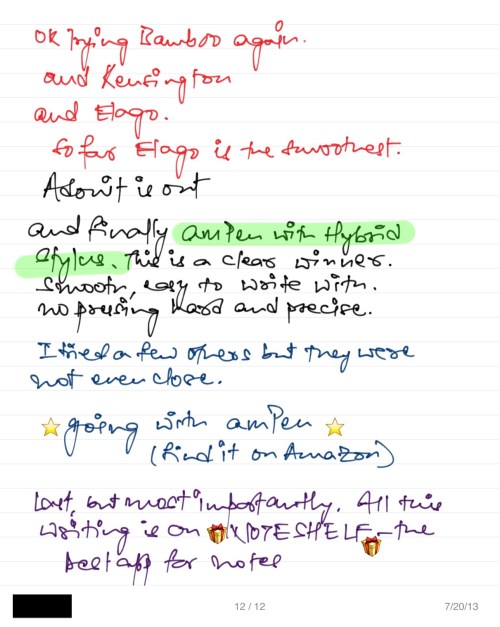 OK trying Bamboo again.
and Kensington
and Elago.
So far Elago is the smoothest.
Adonit is out
and finally amPen with Hybrid
Stylus. This is a clear winner.
Smooth, easy to write with.
no pressing hard and precise.
I tried a few others but they were
not even close.
going with amPen
(find it on Amazon)
Last, but most importantly. All this
writing is on NOTESHELF - the
best app for notes
12 / 12
7/20/13